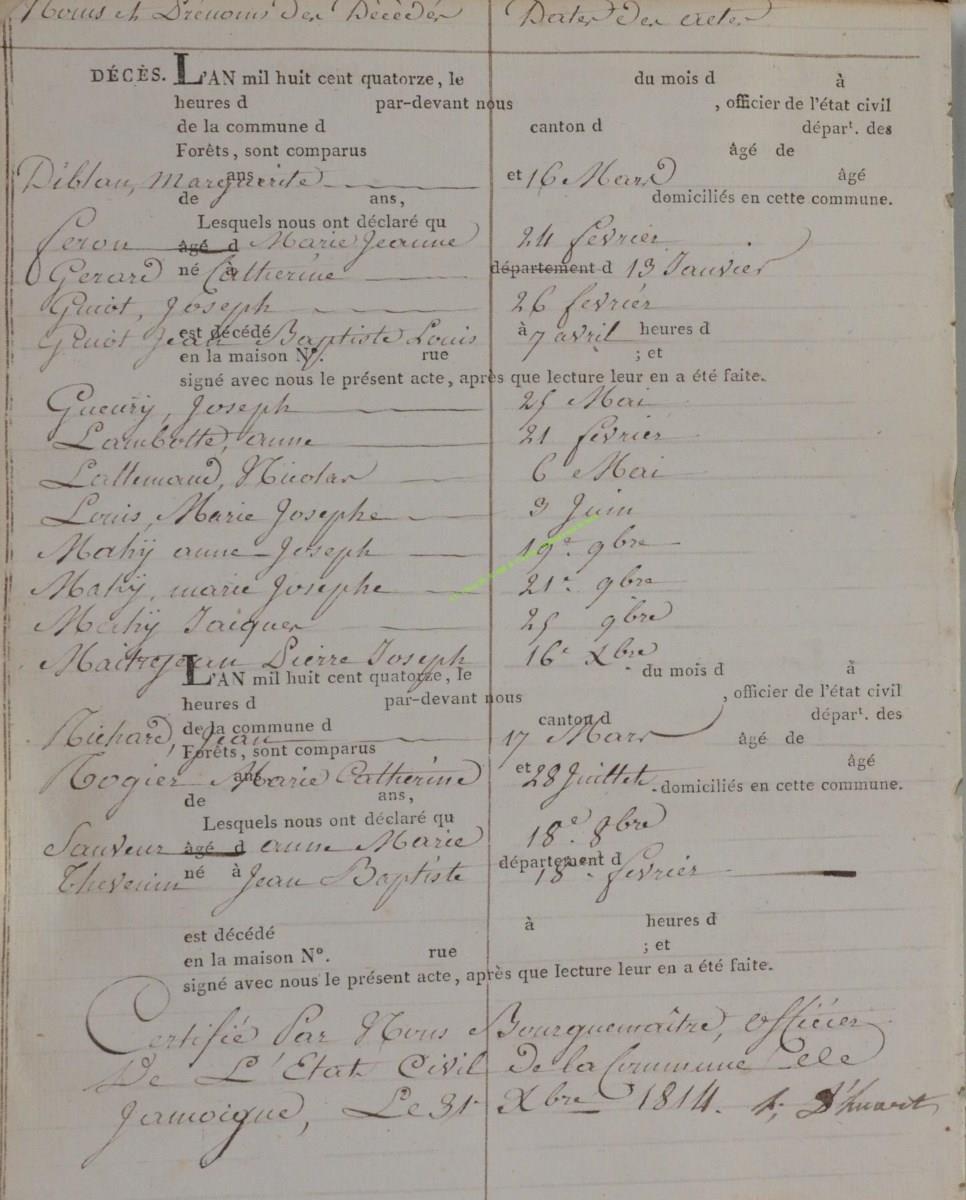 Noms et Prénoms des Décédés Dates des actes
DÉCÈS. L'AN mil huit cent quatorze, le du mois d à
heures d par-devant nous , officier de l'état civil
de la commune d canton d départ. des
Forêts, sont comparus âgé de
Diblau, Marguerite ans et 16 Mars âgé
de ans, domiciliés en cette commune.
Lesquels nous ont déclaré qu
feron âgé d Marie Jeanne 24 fevrier
Gerard né à Catherine département d 13 Janvier
Guiot, Joseph 26 fevrier
Guiot Jean Baptiste Louis est décédé à 7 avril heures d
en la maison N°. rue ; et
signé avec nous le présent acte, après que lecture leur en a été faite.
Gueury, Joseph 25 Mai
Lambotte, anne 21 fevrier
Lallemand, Nicolas 6 Mai
Louis, Marie Josephe 3 Juin
Mahy anne Joseph 19e. 9bre
Mahy, marie Josephe 21e. 9bre
Mahy Jaiques 25 9bre
Maitrejean Pierre Joseph 16e Xbre
L'AN mil huit cent quatorze, le du mois d à
heures d par-devant nous , officier de l'état civil
de la commune d canton d départ. des
Richard, Jean 17 Mars âgé de
Forêts, sont comparus
Rogier Marie Catherine ans et 28 Juillet âgé
de ans, domiciliés en cette commune.
Lesquels nous ont déclaré qu
Sauveur âgé d anne Marie 18e 8bre
Thevenin né à Jean Baptiste département d 18e fevrier
est décédé à heures d
en la maison N°. rue ; et
signé avec nous le présent acte, après que lecture leur en a été faite.
Certifié Par Nous Bourguemaître, officier
De L'Etat Civil de la Commune de
Jamoigne, Le 31 Xbre 1814. D'huart